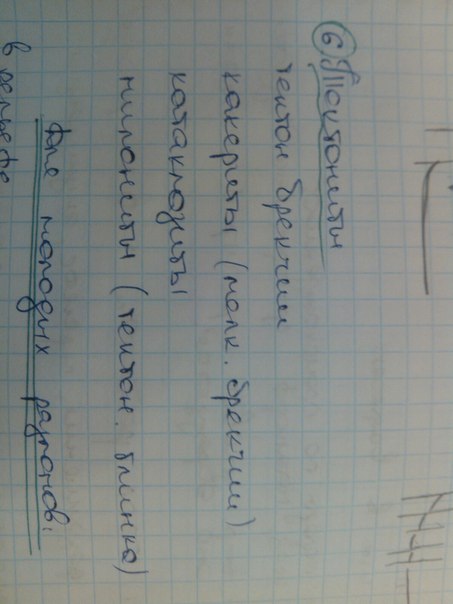 6 Тектониты
тектон брекчии
какериты (мелк. брекчии)
катаклазиты
милониты (тектон. глинка)
для молодых разломов:
в рельефе